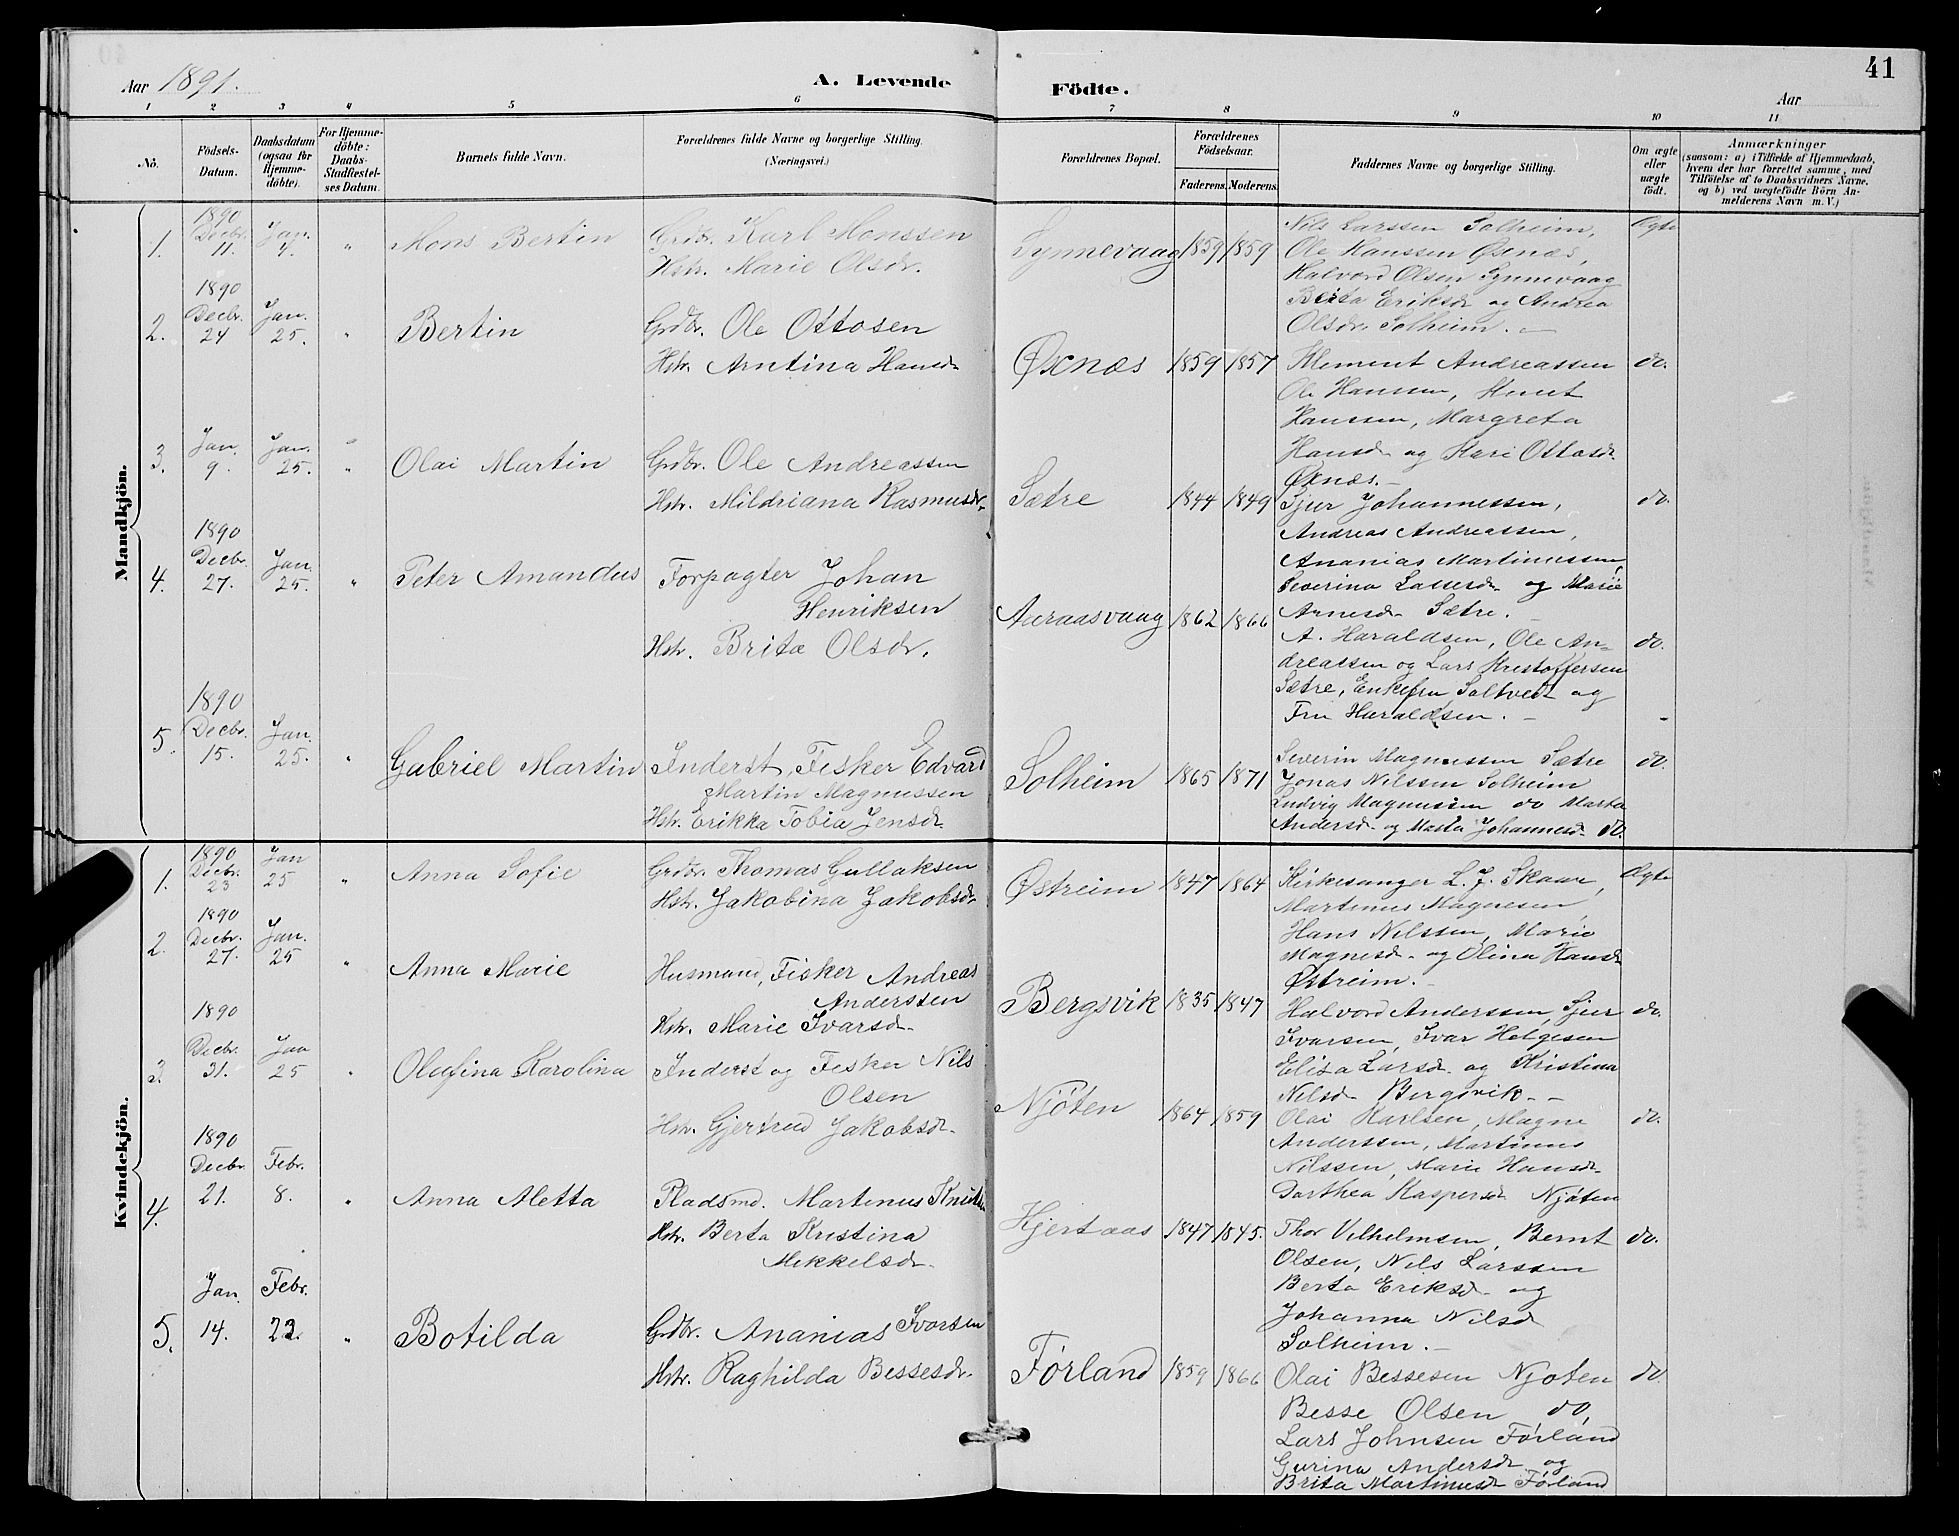 41
Aar 1891.
A. Levende Födte.
Aar
1 2 3 4 5 6 7 8 9 10 11
No.
Födsels-Datum.
Daabsdatum (ogsaa for Hjemme-döbte).
For Hjemme-döbte: Daabs-Stadfæstel-ses Datum.
Barnets fulde Navn.
Forældrenes fulde Navne og borgerlige Stilling.
(Næringsvei.)
Forældrenes Bopæl.
Forældrenes Födselsaar.
Faderens. Moderens.
Faddernes Navne og borgerlige Stilling.
Om ægte eller uægte födt.
Anmærkninger
(saasom: a) i Tilfælde af Hjemmedaab,
hvem der har forrettet samme, med
Tilföielse af to Daabsvidners Navne,
og b) ved uægtefödte Börn An-
melderens Navn m. V.)
Mandkjön.
1. 1890 Decbr. 11. Jan. 4. " Mons Bertin
Grdbr. Karl Monssen
Hstr. Marie Olsdr.
Synnevaag 1859 1859
Nils Larssen Solheim,
Ole Hanssen Øxnæs,
Halvord Olsen Synnevaag
Berta Eriksdr og Andrea
Olsdr. Solheim. –
Ægte
2. 1890 Decbr. 24 Jan. 25. " Bertin
Grdbr. Ole Ottosen
Hstr. Arntina Hansdr
Øxnæs 1859 1857
Klement Andreassen
Ole Hanssen, Knut
Hanssen, Margreta
Hansdr og Kari Ottosdr
Øxnæs. –
do.
3. Jan. 9. Jan. 25. " Olai Martin
Grdbr. Ole Andreassen
Hstr. Mildriana Rasmusdr.
Sætre 1844 1849
Sjur Johannessen,
Andreas Andreassen,
Ananias Martinussen,
Severina Lassesdr og Marie
Arnesdr Sætre. –
do.
4. 1890 Decbr. 27. Jan. 25. " Peter Amandus
Forpagter Johan
Henriksen
Hstr. Brita Olsdr.
Auraasvaag 1862 1866
A. Haraldsen, Ole An-
dreassen og Lars Kristoffersen
Sætre, Enkefru Saltveit og
Fru Haraldsen. –
do.
5. 1890 Decbr. 15. Jan. 25. " Gabriel Martin
Inderst, Fisker Edvard
Martin Magnussen
Hstr. Erikka Tobia Jensdr.
Solheim 1865 1871
Severin Magnussen Sætre
Jonas Nilssen Solheim
Ludvig Magnussen do Marta
Andersdr og Marta Johannesdr do.
do.
Kvindekjön.
1. 1890 Decbr. 23 Jan 25 " Anna Sofie
Grdbr. Thomas Gullaksen
Hstr. Jakobina Jakobsdr.
Østreim 1847 1864
Kirkesanger L. J. Skaar,
Martinus Magnesen,
Hans Nilssen, Marie
Magnesdr og Olina Hansdr
Østreim. –
Ægte
2. 1890 Decbr. 27. Jan. 25 " Anna Marie
Husmand, Fisker Andreas
Anderssen
Hstr. Marie Ivarsdr.
Bergsvik 1835 1847
Halvord Anderssen, Sjur
Ivarsen, Ivar Helgesen
Elisa Larsdr. og Kristina
Nilsdr Bergsvik. –
do.
3. 1890 Decbr. 31. Jan 25 " Olufina Karolina
Inderst og Fisker Nils
Olsen
Hstr. Gjertrud Jakobsdr.
Njöten 1864 1859
Olai Karlsen, Magne
Anderssen, Martinus
Nilssen, Marie Hansdr
Dorthea Kaspersdr Njöten
do.
4. 1890 Decbr. 21. Febr. 8. " Anna Aletta
Pladsmd. Martinus Knuts
Hstr. Berta Kristina
Mikkelsdr.
Hjertaas 1847 1845.
Thor Vilhelmsen, Bernt
Olsen, Nils Larssen
Berta Eriksdr og
Johanna Nilsdr
Solheim. –
do.
5. Jan. 14. Febr. 22. " Botilda
Grdbr. Ananias Ivarsen
Hstr. Raghilda Bessesdr.
Förland 1859 1866
Olai Bessesen Njöten
Besse Olsen do,
Lars Johnsen Förland
Gurina Andersdr og
Brita Martinusdr Förland
do.